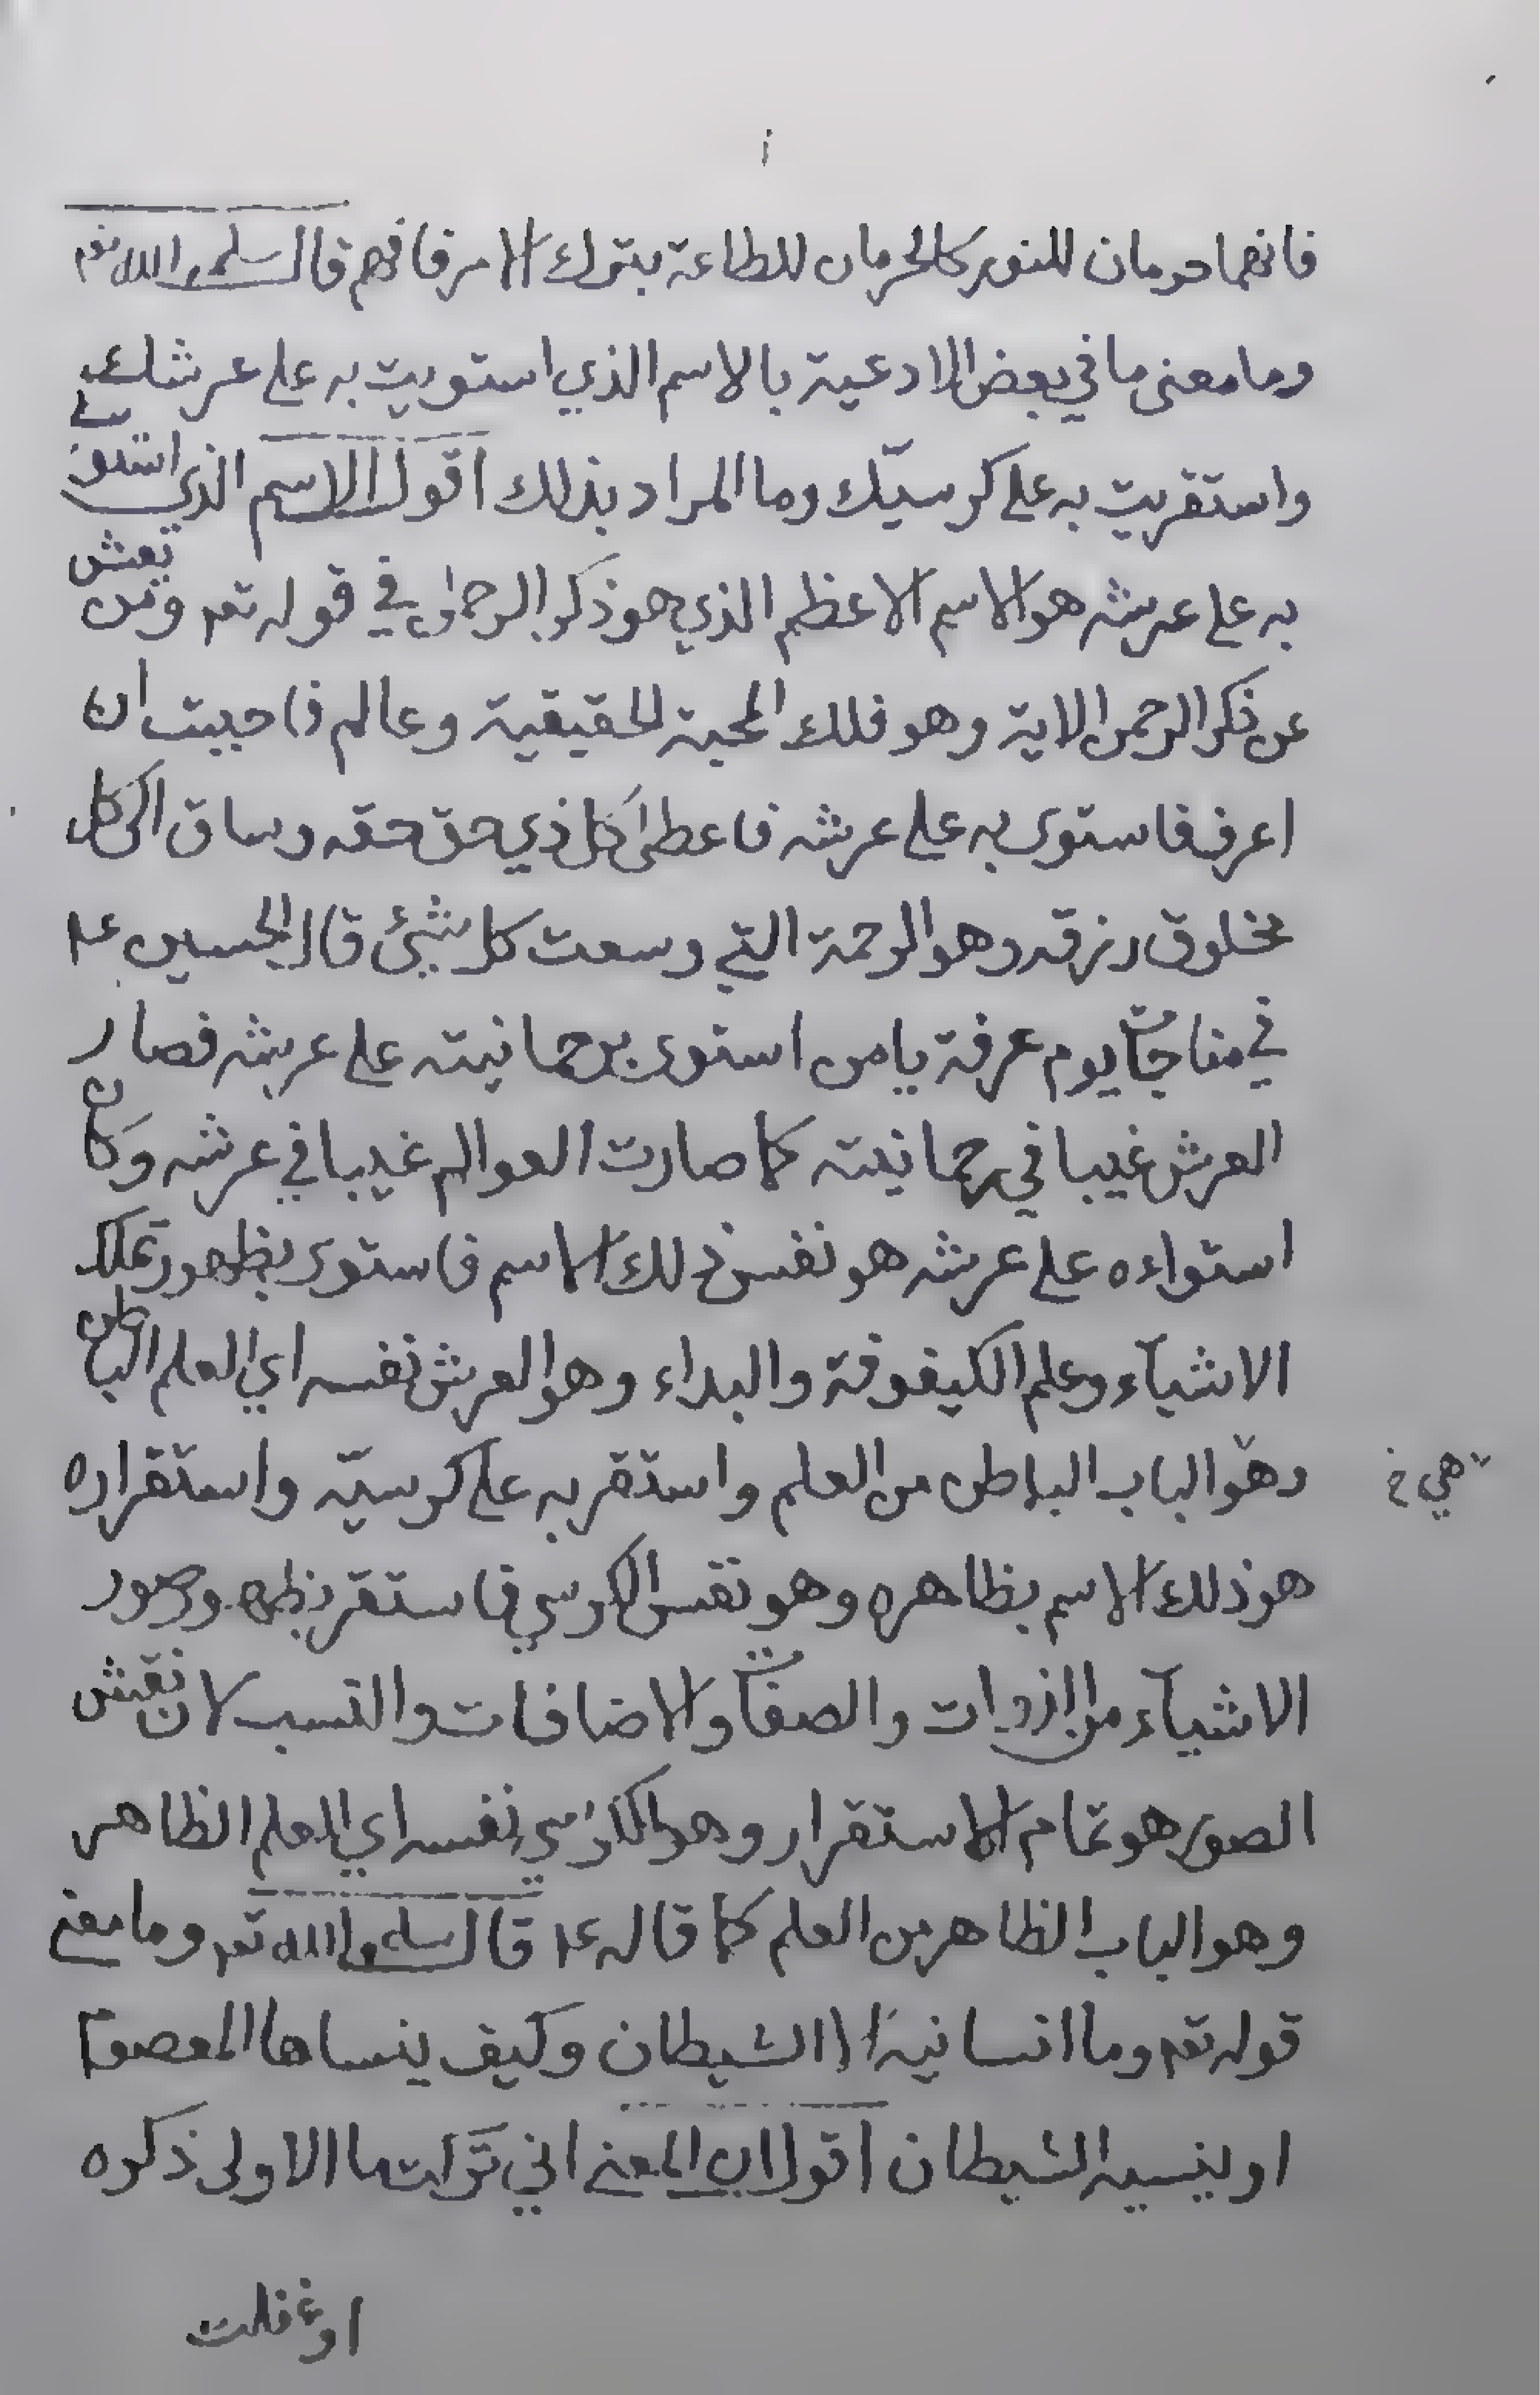 فانهما حرمان للنور كالحرمان للطاعة بترك الامر فافهم قال سلمه الله تعه
وما معنى ما في بعض الادعية بالاسم الذي استويت به على عرشك
واستقريت به على كرسيّك وما المراد بذلك اقول الاسم الذي استوى
به على عرشه هو الاسم الاعظم الذي هو ذكر الرحمن في قوله تعه ومن يعش
عن ذكر الرحمن الاية وهو فلك المحبة الحقيقية وعالم فاحببت ان
اعرف فاستوى به على عرشه فاعطى كل ذي حق حقه وساق الى كل
مخلوق رزقه وهو الرحمة التي وسعت كل شيئ قال الحسين عه
في مناجات يوم عرفة يا من استوى برحمانيته على عرشه فصار
العرش غيبا في رحمانيته كما صارت العوالم غيبا في عرشه وكان
استواءه على عرشه هو نفس ذلك الاسم فاستوى بظهور تملك
الاشيآء وعلم الكيفوفة والبداء وهو العرش نفسه اي العلم الباطن
وهو الباب الباطن من العلم واستقر به على كرسيّه واستقراره
هي خ
هو ذلك الاسم بظاهره وهو نفس الكرسي فاستقر بظهور صور
الاشيآء من الذوات والصفات والاضافات والنسب لان نقش
الصور هو تمام الاستقرار وهو الكرسي نفسه اي العلم الظاهر
وهو الباب الظاهر من العلم كما قاله عه قال سلمه الله تعه وما معنى
قوله تعه وما انسانيه الا الشيطان وكيف ينساها المعصوم
او ينسيه الشيطان اقول ان المعنى اني تركت ما الاولى ذكره
او غفلت